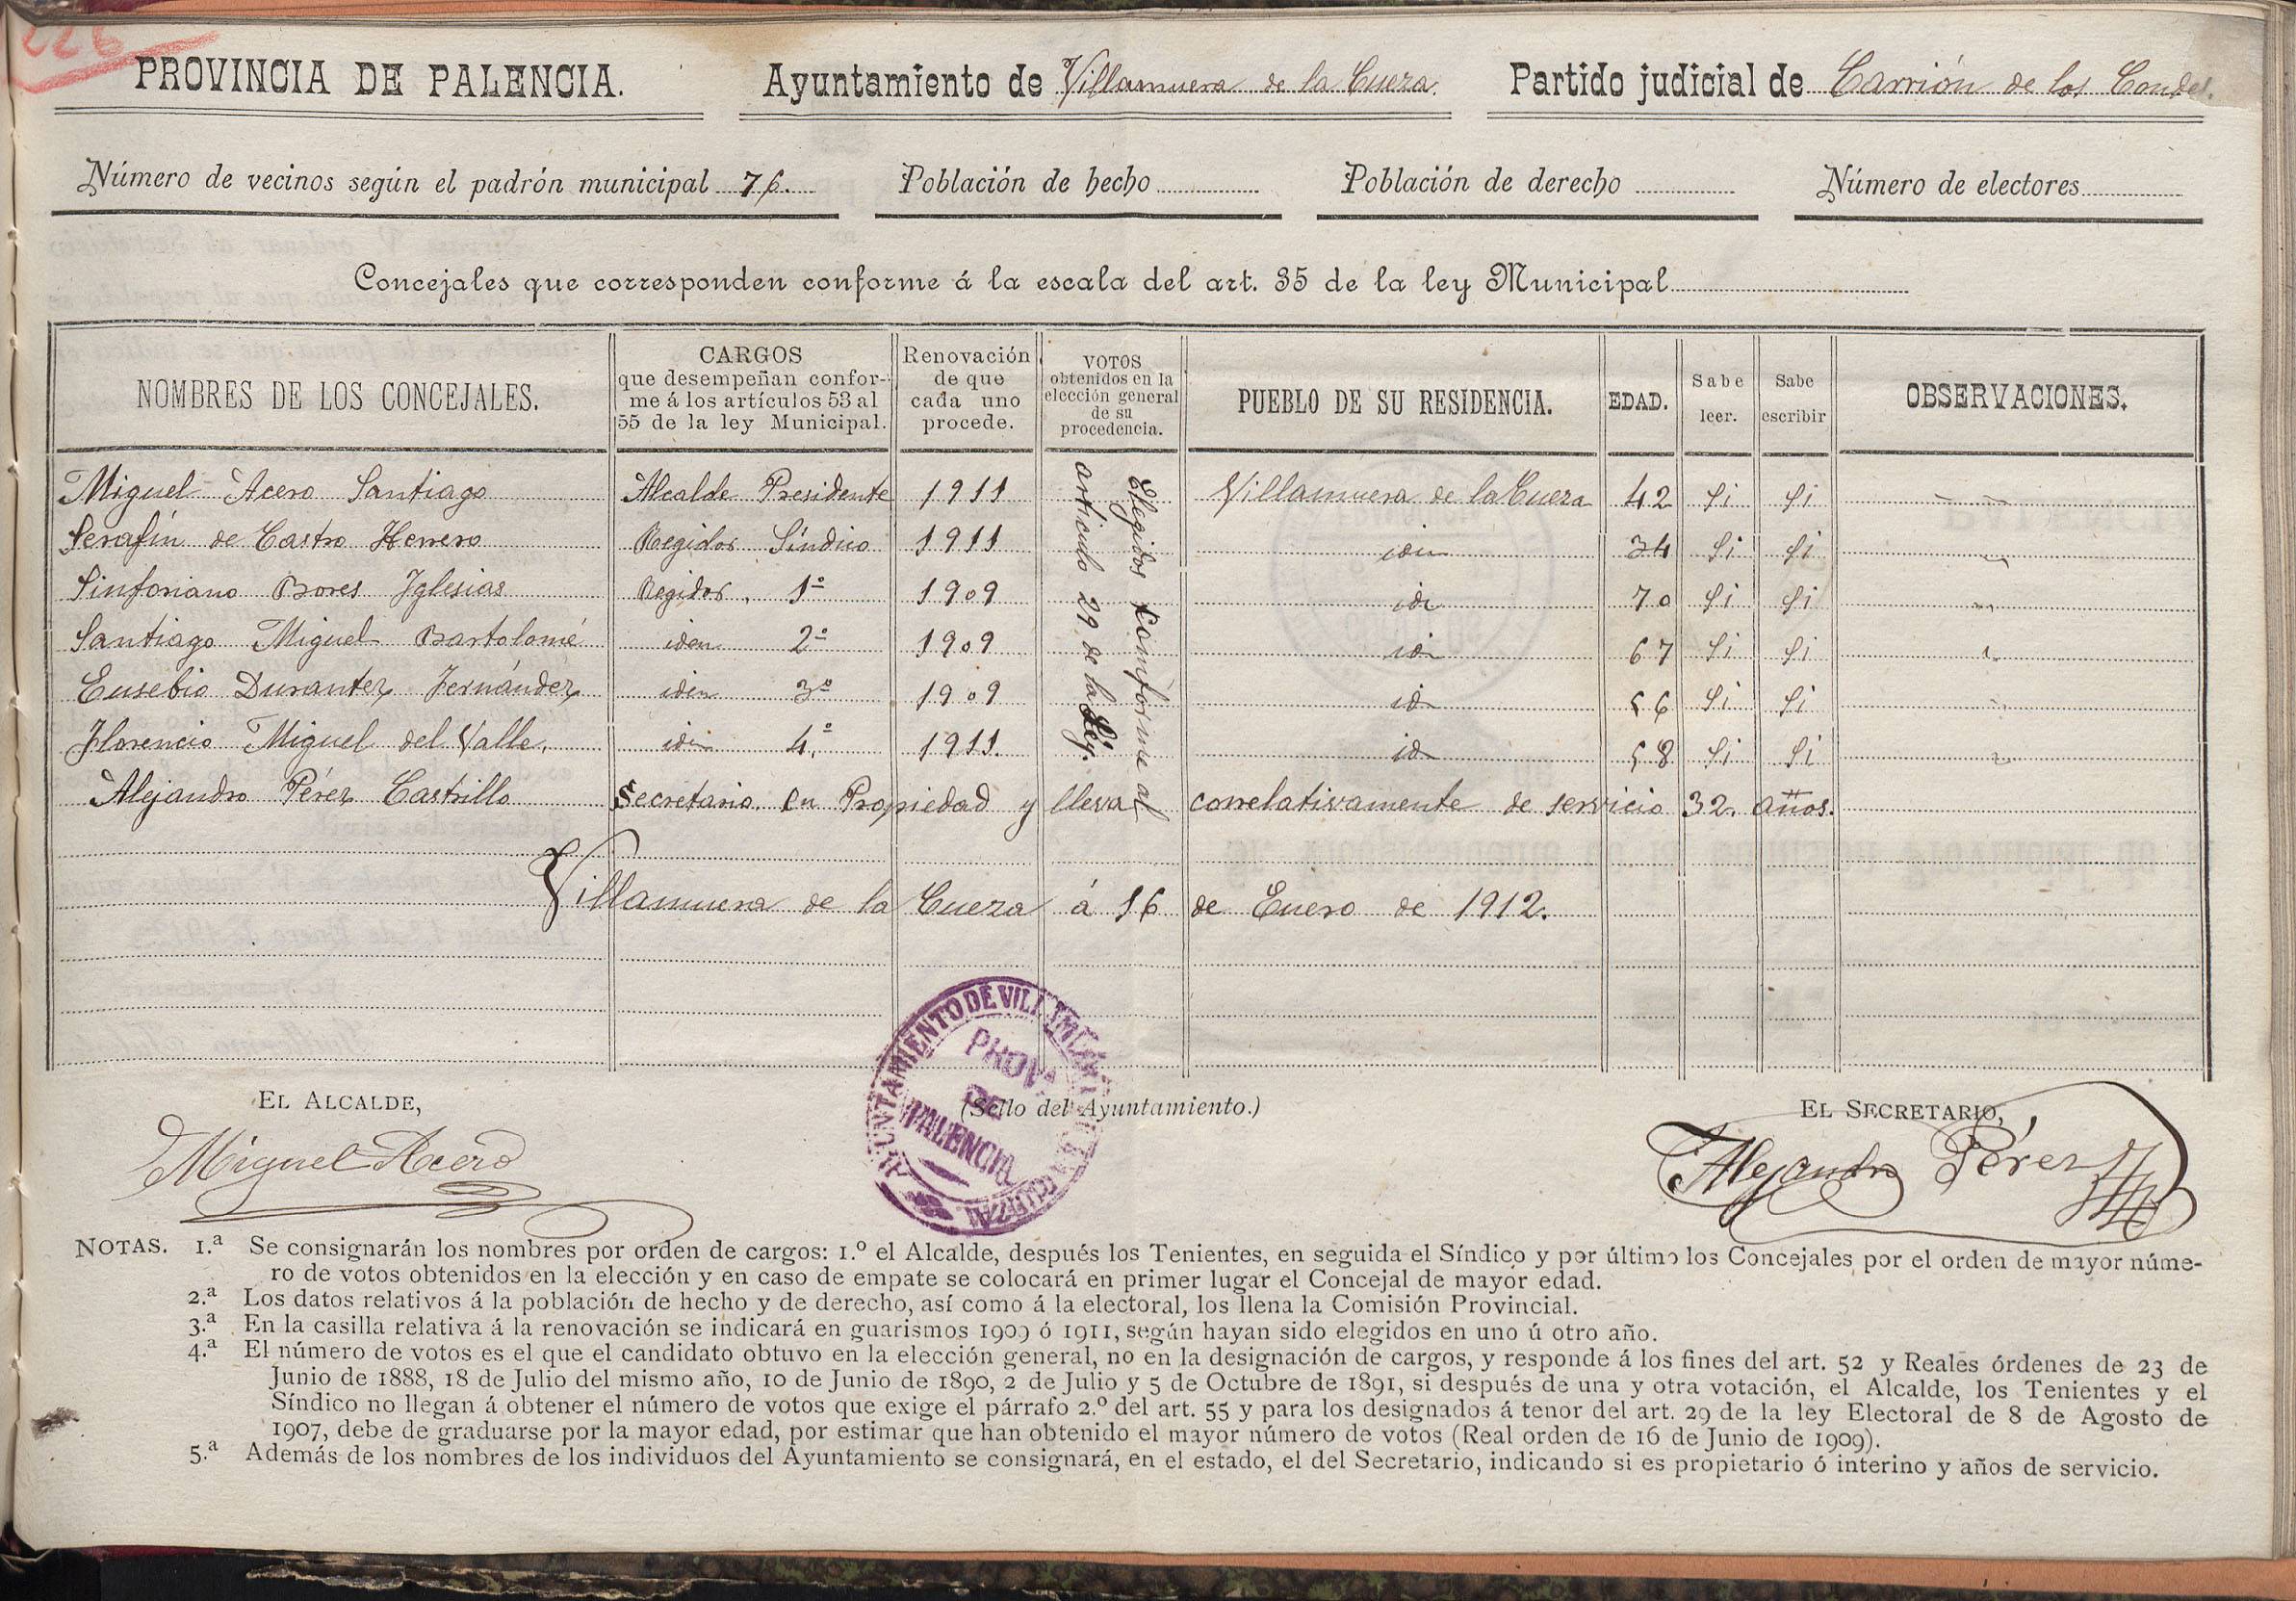 226
PROVINCIA DE PALENCIA. Ayuntamiento de Villamuera de la Cueza. Partido judicial de Carrión de los Condes.
Número de vecinos según el padrón municipal 76. Población de hecho Población de derecho Número de electores
Concejales que corresponden conforme á la escala del art. 35 de la ley Municipal
NOMBRES DE LOS CONCEJALES.
CARGOS
que desempeñan confor-
me á los artículos 53 al
55 de la ley Municipal.
Renovación
de que
cada uno
procede.
VOTOS
obtenidos en la
elección general
de su
procedencia.
PUEBLO DE SU RESIDENCIA.
EDAD.
Sabe
leer.
Sabe
escribir
OBSERVACIONES.
Miguel Acero Santiago Alcalde Presidente 1911 Villamuera de la Cueza 42 Si Si
Serafín de Castro Herrero Regidor Síndico 1911 iden 34 Si Si
Sinforiano Bores Iglesias Regidor. 1º 1909 ide 70 Si Si
Santiago Miguel Bartolomé iden 2º 1909 id 67 Si Si
Eusebio Durantez Fernández iden 3º 1909 id 56 Si Si
Florencio Miguel del Valle. iden 4º 1911. id 58 Si Si
Elegidos comforme al
articulo 29 de la Ley.
Alejandro Pérez Castrillo Secretario en Propiedad y lleva correlativamente de servicio 32. años.
Villamuera de la Cueza á 16 de Enero de 1912.
EL ALCALDE,
Miguel Acero
(Sello del Ayuntamiento.)
AYUNTAMIENTO DE VILLAMUERA DE LA CUEZA
PROVA
DE
PALENCIA
EL SECRETARIO,
Alejandro Pérez
NOTAS. 1.ª Se consignarán los nombres por orden de cargos: 1.º el Alcalde, después los Tenientes, en seguida el Síndico y por último los Concejales por el orden de mayor núme-
ro de votos obtenidos en la elección y en caso de empate se colocará en primer lugar el Concejal de mayor edad.
2.ª Los datos relativos á la población de hecho y de derecho, así como á la electoral, los llena la Comisión Provincial.
3.ª En la casilla relativa á la renovación se indicará en guarismos 1909 ó 1911, según hayan sido elegidos en uno ú otro año.
4.ª El número de votos es el que el candidato obtuvo en la elección general, no en la designación de cargos, y responde á los fines del art. 52 y Reales órdenes de 23 de
Junio de 1888, 18 de Julio del mismo año, 10 de Junio de 1890, 2 de Julio y 5 de Octubre de 1891, si después de una y otra votación, el Alcalde, los Tenientes y el
Síndico no llegan á obtener el número de votos que exige el párrafo 2.º del art. 55 y para los designados á tenor del art. 29 de la ley Electoral de 8 de Agosto de
1907, debe de graduarse por la mayor edad, por estimar que han obtenido el mayor número de votos (Real orden de 16 de Junio de 1909).
5.ª Además de los nombres de los individuos del Ayuntamiento se consignará, en el estado, el del Secretario, indicando si es propietario ó interino y años de servicio.